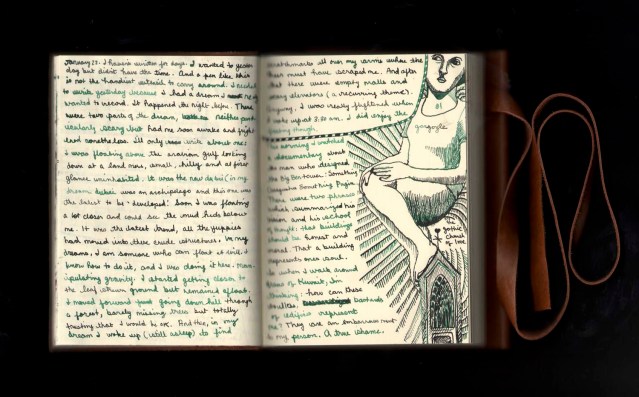 January 23. I haven't written for days. I wanted to yester-
day but didn't have the time. And a pen like this
is not the handiest to carry around. I
to write yesterday because I had a dream I
wanted to record. It happened the night before. There
were two parts of the dream, neither part-
icularly scary but had me soon awake and fright-
ened nonetheless. I'll only write about one:
I was floating above the arabian gulf looking
down at a land mass, small, hilly and at first
glance uninhabited. It was the new dubai (in my
dream dubai was an archipelago and this one was
the latest to be developed. Soon I was floating
a lot closer and could see the mud huts below
me. It was the latest trend, all the yuppies
had moved into these crude structures. In my
dreams, I am someone who can float at will, I
know how to do it, and I was doing it here. Man-
ipulating gravity. I started getting closer to
the leaf strewn ground but remained afloat.
I moved forward going down hill through
a forest, barely missing trees but totally
trusting that I would be ok. And then, in my
dream I woke up (still asleep) to find
scratchmarks all over my arms where the
trees must have scraped me. And after
that there were empty malls and
scary elevators (a recurring theme).
Anyway, I was really frightened when
I woke up at 3:30 am. I did enjoy the
floating though.
This morning I watched
a documentary about
the man who designed
the Big Ben tower. Something
Something Pugin.
There were two phrases
which summarized his
vision and his school
of thought; that buildings
should be Earnest and
moral. That a building
represents ones soul.
So when I walk around
of Kuwait, I'm
thinking: how can these
bastards
of edifices represent
me? They are an embarrassment
to my person. A true shame.
#1
gargoyle
gothic
church
of love